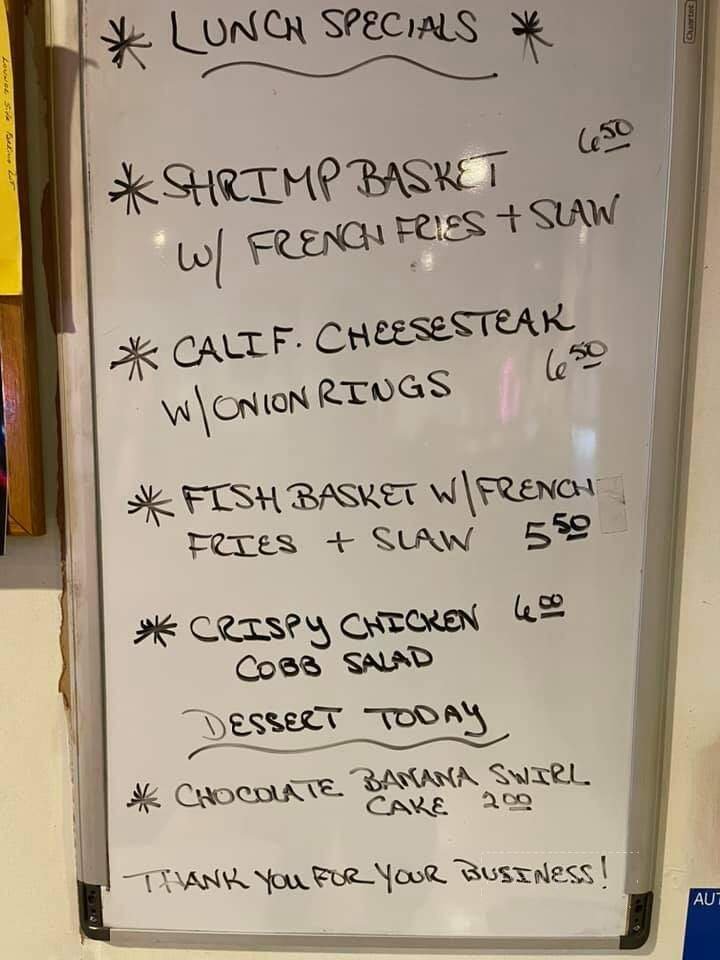 Quartet
* LUNCH SPECIALS *
* SHRIMP BASKET 6.50
W/ FRENCH FRIES + SLAW
* CALIF. CHEESESTEAK
W/ ONION RINGS 6.50
* FISH BASKET W/ FRENCH
FRIES + SLAW 5.50
* CRISPY CHICKEN 6.00
COBB SALAD
DESSERT TODAY
* CHOCOLATE BANANA SWIRL
CAKE 2.00
THANK YOU FOR YOUR BUSINESS!
AUT